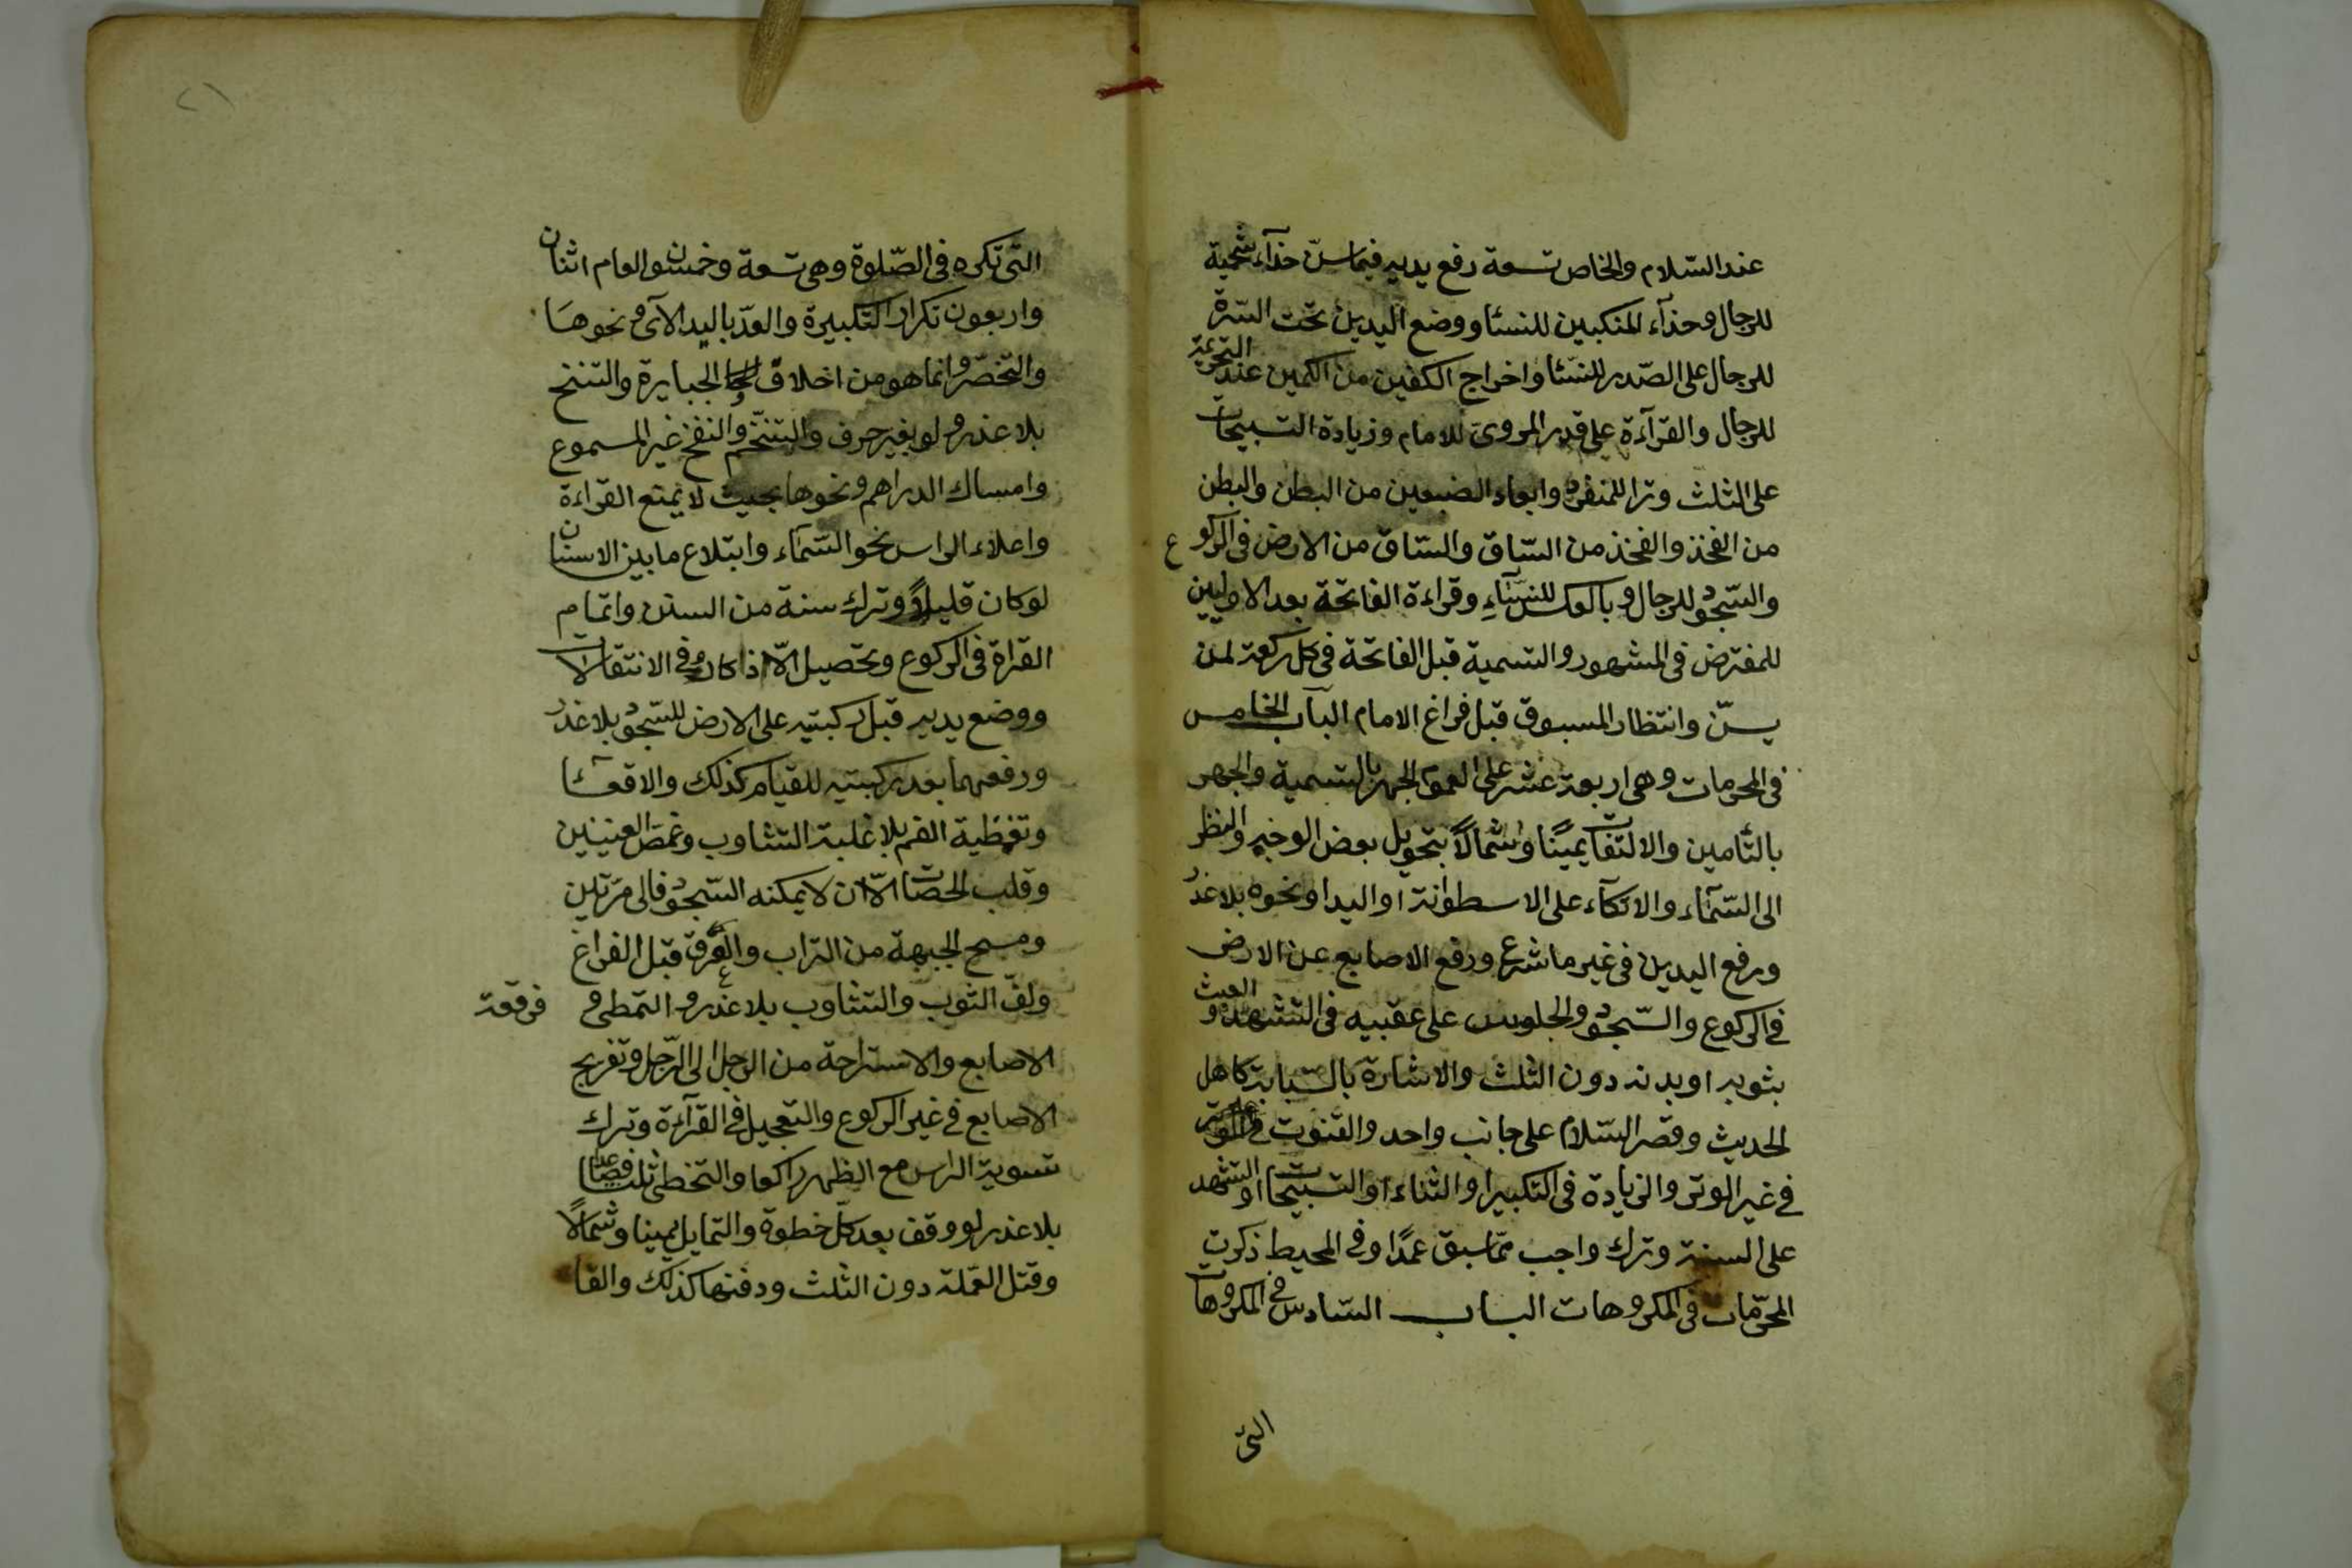 عند السّلام والخاص تسعة رفع يديه فيما سنّ حذآء شحمية
للرجال وحذآء المنكبين للنسٓا ووضع اليدين تحت السّرة
للرجال على الصّدر للنسٓا واخراج الكفين من الكمين عند التحريمة
للرجال والقرآءة على قدر المروى للامام وزيادة التسبيحات
على الثلث وترا للمنفرد وابعاد الضبعين من البطن والبطن
من الفخذ والفخذ من السّاق والسّاق من الارض فى الركوع
والسّجود للرجال وبالعكس للنسٓاء وقراءة الفاتحة بعد الاوليين
للمفترض فى المشهور والتسمية قبل الفاتحة فى كل ركعة لمن
يسنّ وانتظار المسبوق قبل فراغ الامام الباب الخامس
فى المحرمات وهى اربعة عشر على العموم الجهر بالتسمية والجهر
بالتّأمين والالتفات يمينًا وشمالًا بتحويل بعض الوجه والنظر
الى السّمآء والاتكآء على الاسطوانة او اليد او نحوه بلا عذر
ورفع اليدين فى غير ما شرع ورفع الاصابع عن الارض
فى الركوع والسّجود والجلوس على عقبيه فى التشهد والعبث
بثوبه او بدنه دون الثلث والاشارة بالسّبابة كاهل
الحديث وقصر السّلام على جانب واحد والقنوت
فى غير الوتر والزيادة فى التكبير او الثناء او التسبيحات او التشهد
على السنة وترك واجب ممّا سبق عمدًا وفى المحيط ذكرت
المحرّمات فى المكروهات الباب السّادس فى المكروهات
التى
٢١
التى تكره فى الصّلوة وهى تسعة وخمسون العام اثنان
واربعون تكرار التكبيرة والعدّ باليد الآى ونحوها
والتخصّر وانما هو من اخلاق الجبابرة والتنحنح
بلا عذر ولو بغير حرف والتنخّم والنفخ غير المسموع
وامساك الدراهم ونحوها بحيث لا يمنع القراءة
واعلاء الراس نحو السّمآء وابتلاع ما بين الاسنان
لو كان قليلًا وترك سنة من السنن واتمام
القراة فى الركوع وتحصيل الاذكار فى الانتقالات
ووضع يديه قبل ركبتيه على الارض للسّجود بلا عذر
ورفعهما بعد ركبتيه للقيام كذلك والاقعآء
وتغطية الفم بلا غلبة التثاوب وغمض العينين
وقلب الحصات الّا ان لا يمكنه السّجود فالى مرّتين
ومسح الجبهة من التراب والعرق قبل الفراغ
ولفّ الثوب والتثاوب بلا عذر والتمطى و فرقعة
الاصابع والاستراحة من الرجل الى الرّجل وتفريج
الاصابع فى غير الركوع والتعجيل فى القرآءة وترك
تسوية الراس مع الظهر راكعا والتخطى ثلثا فصاعدا
بلا عذر لو وقف بعد كلّ خطوة والتمايل يمينا وشمالًا
وقتل القملة دون الثلث ودفنها كذلك والقا